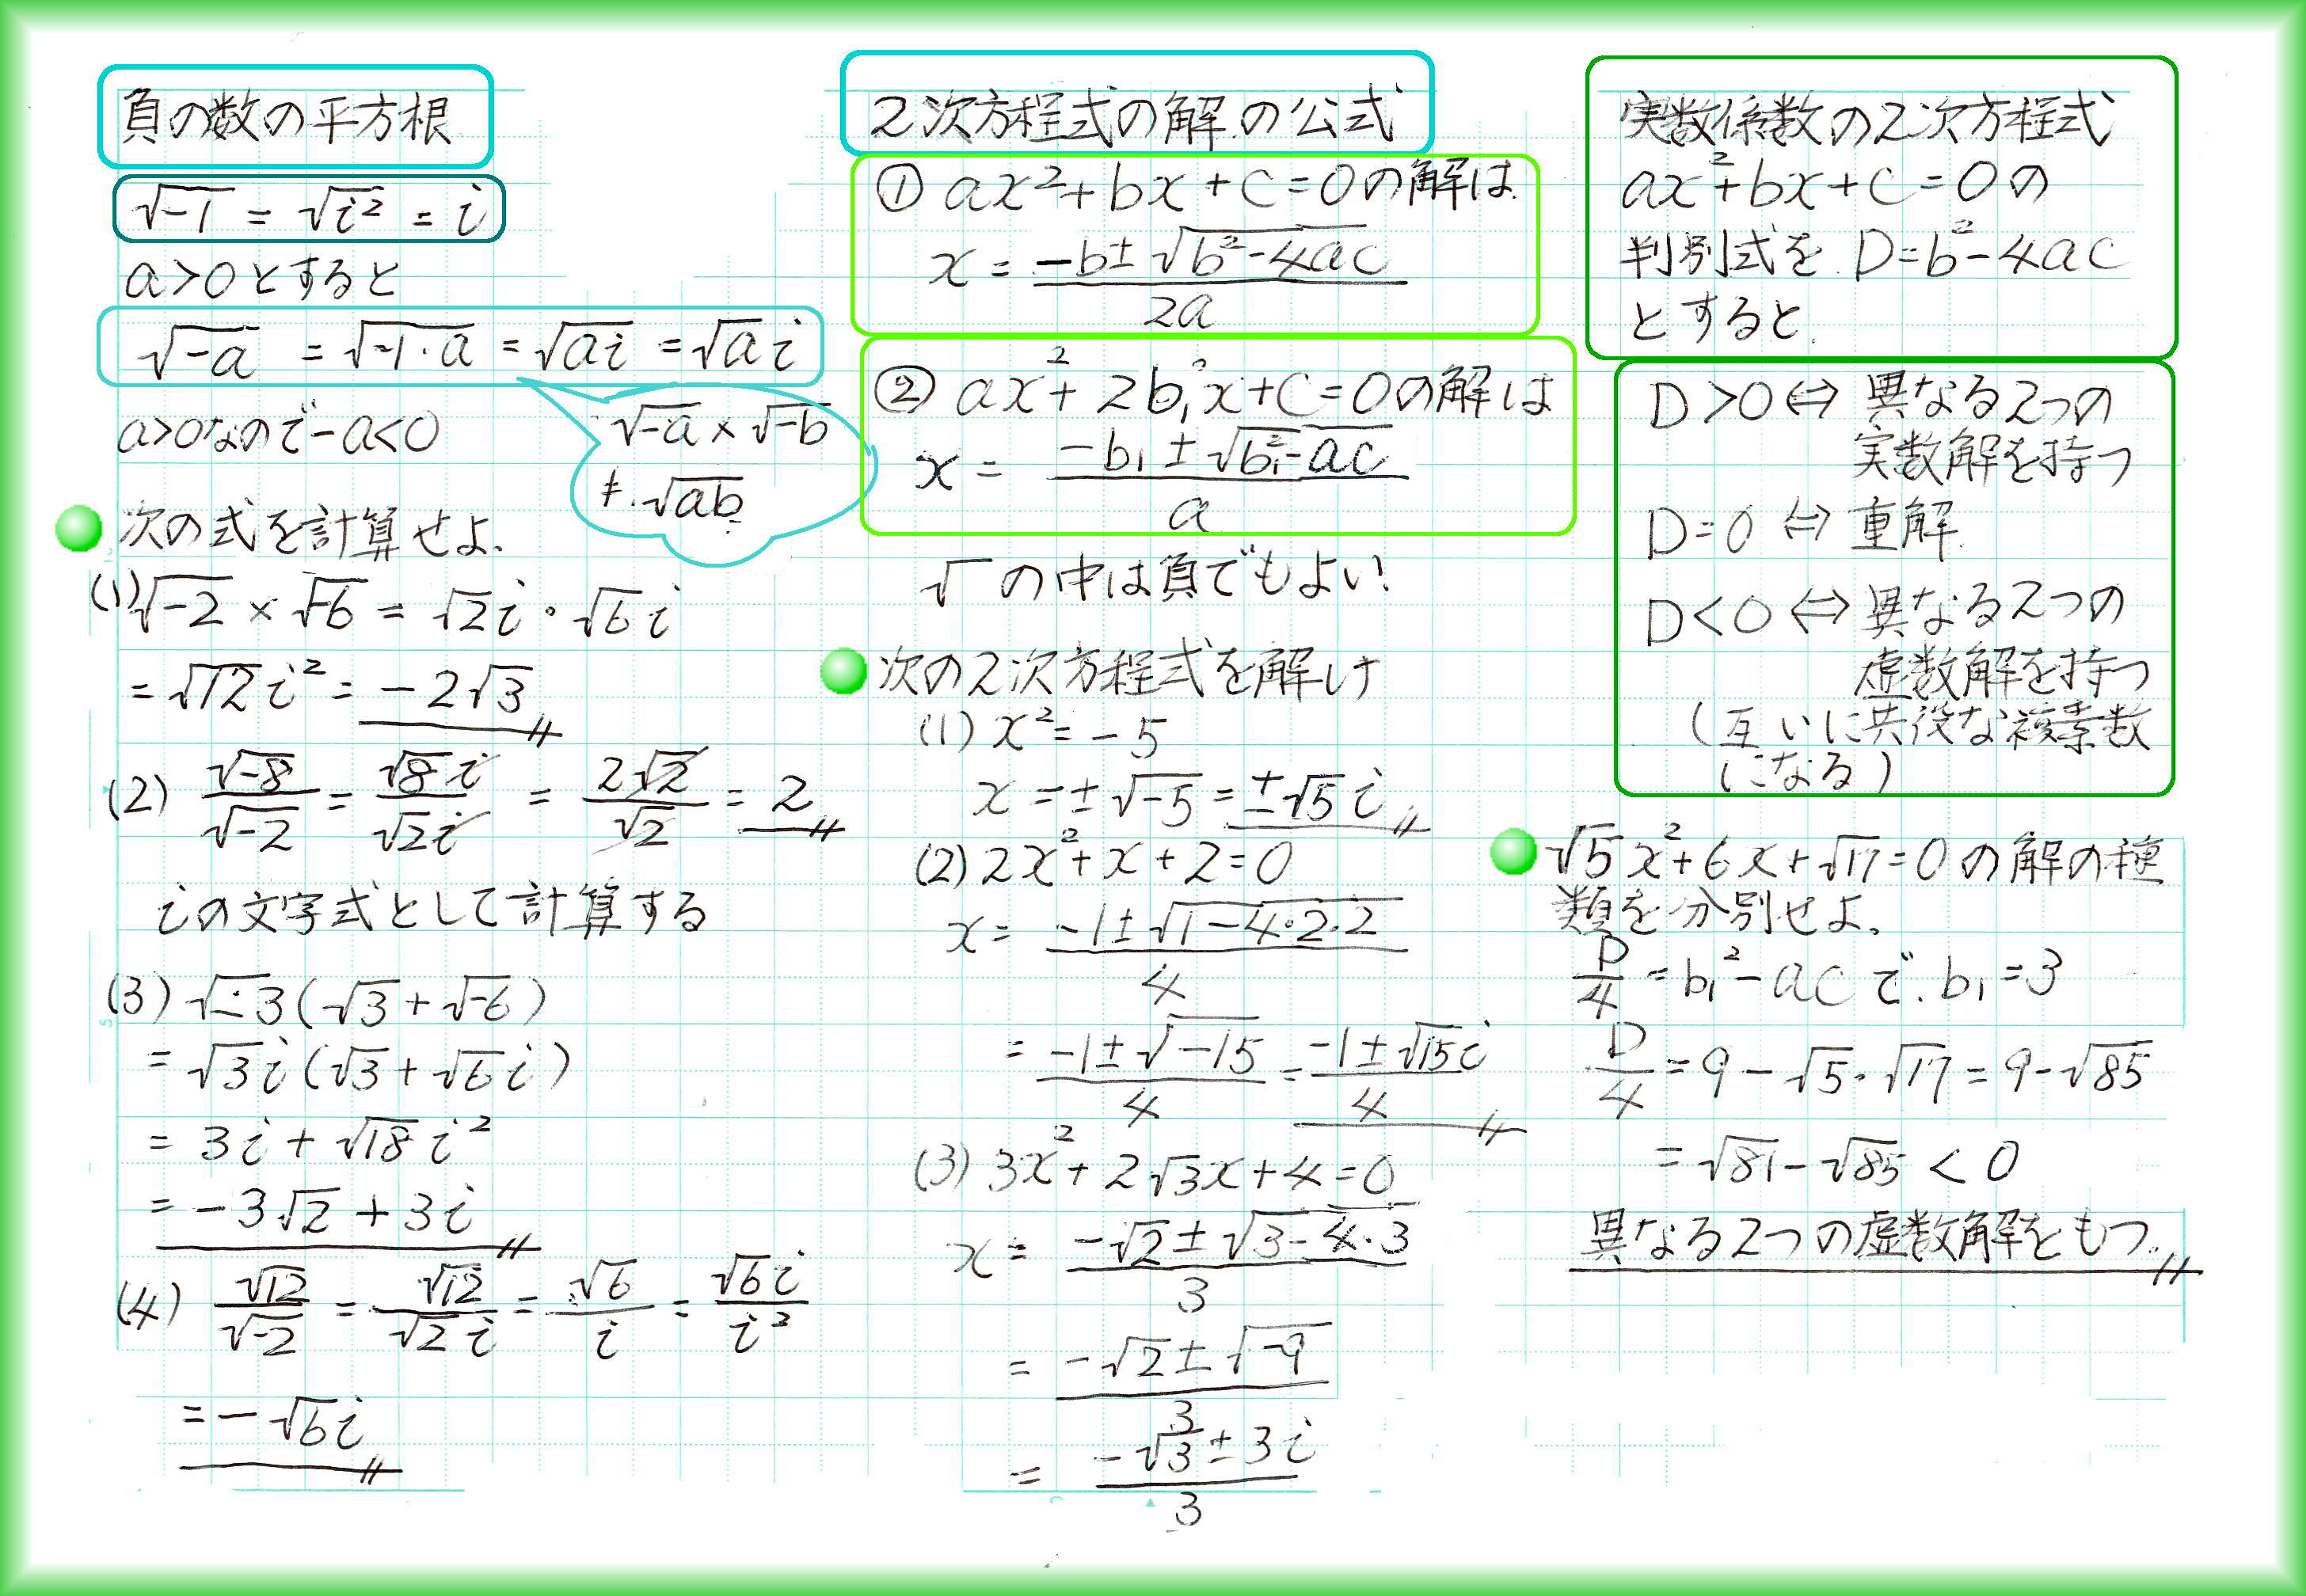 負の数の平方根
√-1 = √i² = i
a>0とすると
√-a = √-1・a = √ai = √a i
a>0なので-a<0
√-a × √-b
≠ √ab
次の式を計算せよ.
(1) √-2 × √-6 = √2i・√6i
= √12 i² = -2√3
(2) √-8/√-2 = √8i/√2i = 2√2/√2 = 2
iの文字式として計算する
(3) √-3(√3+√-6)
= √3i(√3+√6i)
= 3i+√18i²
= -3√2+3i
(4) √12/√-2 = √12/√2i = √6/i = √6i/i²
= -√6i
2次方程式の解の公式
① ax²+bx+c=0の解は
x = (-b±√b²-4ac)/2a
② ax²+2b₁x+c=0の解は
x = (-b₁±√b₁²-ac)/a
√の中は負でもよい!
次の2次方程式を解け
(1) x²=-5
x=±√-5=±√5i
(2) 2x²+x+2=0
x = (-1±√1-4・2・2)/4
= (-1±√-15)/4 = (-1±√15i)/4
(3) 3x²+2√3x+4=0
x = (-√2±√3-4・3)/3
= (-√2±√-9)/3
= (-√3±3i)/3
実数係数の2次方程式
ax²+bx+c=0の
判別式をD=b²-4ac
とすると
D>0⇔異なる2つの
実数解を持つ
D=0⇔重解
D<0⇔異なる2つの
虚数解を持つ
(互いに共役な複素数
になる)
√5x²+6x+√17=0の解の種
類を分別せよ.
D/4=b₁²-acで.b₁=3
D/4=9-√5・√17=9-√85
=√81-√85<0
異なる2つの虚数解をもつ.